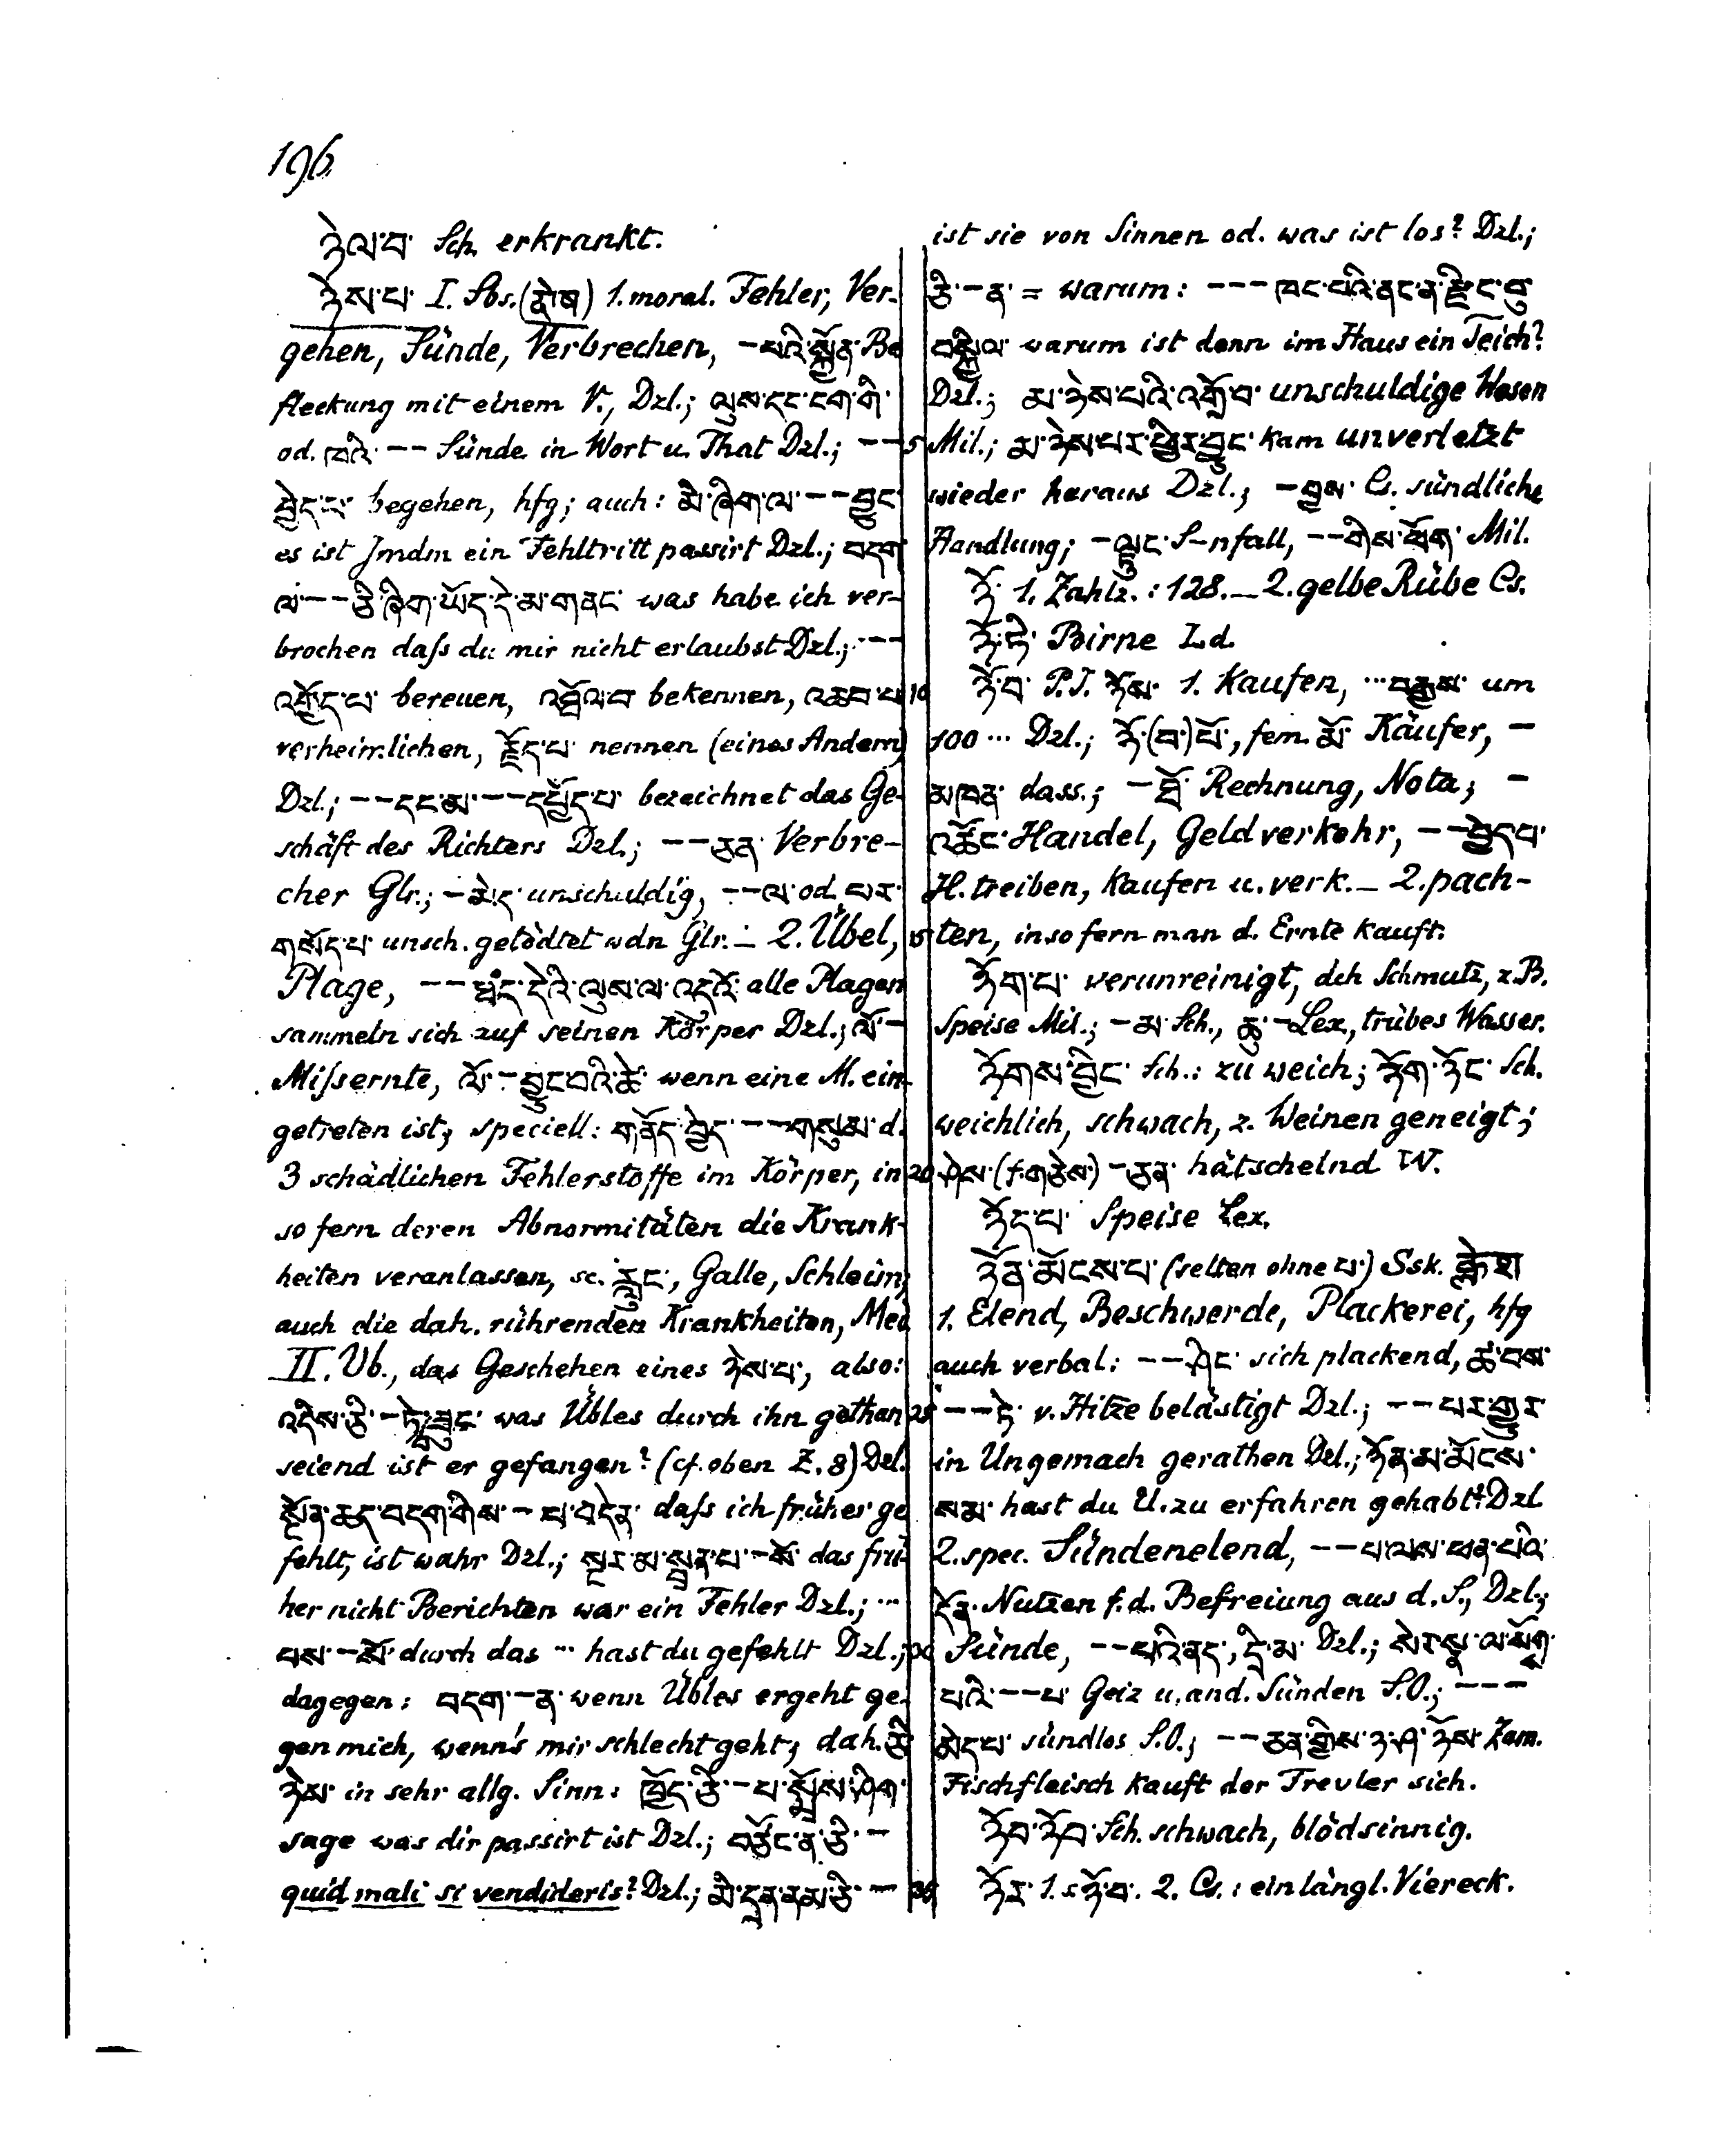 196
ཉེལ་བ་ Sch. erkrankt.
ཉེས་པ་ I. Sbs. 1. moral. Fehler, Ver-
gehen, Sünde, Verbrechen, – པའི་སྐྱོན་ Be
fleckung mit einem V., Dzl.; ལུས་དང་ངག་གི་
od. ཁའི་ – – Sünde in Wort u. That Dzl.; – –
བྱེད་པ་ begehen, hfg; auch: མི་ཞིག་ལ་ – – བྱུང་
es ist Jmdm ein Fehltritt passirt Dzl.; བདག་
ལ་ – – ཅི་ཞིག་ཡོད་དེ་མ་གནང་ was habe ich ver-
brochen daſs du mir nicht erlaubst Dzl.; – –
འགྱོད་པ་ bereuen, འཐོལ་བ་ bekennen, འཆབ་པ་
verheimlichen, རྩོད་པ་ nennen (eines Andern)
Dzl.; – – དང་མ་ – – དཔྱོད་པ་ bezeichnet das Ge-
schäft des Richters Dzl.; – – ཅན་ Verbre-
cher Glr.; – མེད་ unschuldig, – – ལ་ od. པར་
གསོད་པ་ unsch. getödtet wdn Glr. – 2. Übel,
Plage, – – ཐམད་དེའི་ལུས་ལ་འདུའོ་ alle Plagen
sammeln sich auf seinen Körper Dzl.; ལོ་ –
Miſsernte, ལོ་ – བྱུང་བའི་ཚེ་ wenn eine M. ein-
getreten ist; speciell: གནོད་བྱེད་ – – གསུམ་ d.
3 schädlichen Fehlerstoffe im Körper, in
so fern deren Abnormitäten die Krank-
heiten veranlassen, sc. རླུང་, Galle, Schleim,
auch die dah. rührenden Krankheiten, Med
II. Vb., das Geschehen eines ཉེས་པ་, also:
འདིས་ཅི་ – ཏེ་བཟུང་ was Übles durch ihn gethan
seiend ist er gefangen? (cf. oben Z. 8) Dzl.
སྔོན་ཆད་བདག་གིས་ – པ་བདེན་ daſs ich früher ge
fehlt, ist wahr Dzl.; སྔར་མ་སྨྲན་པ་ – སོ་ das frü-
her nicht Berichten war ein Fehler Dzl.; ...
པས་ – སོ་ durch das ... hast du gefehlt Dzl.;
dagegen: བདག་ – ན་ wenn Übles ergeht ge-
gen mich, wenn's mir schlecht geht; dah. ཅི་
ཉེས་ in sehr allg. Sinn: ཁྱོད་ཅི་ – པ་སྨྲོས་ཤིག་
sage was dir passirt ist Dzl.; བཙོང་ན་ཅི་ –
quid mali si vendideris? Dzl.; མི་དྲན་ནམ་ཅི་ –
ist sie von Sinnen od. was ist los? Dzl.;
ཅི་ – ན་ = warum: – – – ཁང་པའི་ནང་ན་རྫིང་བུ་
བསྐྱིལ་ warum ist denn im Haus ein Teich?
Dzl.; མ་ཉེས་པའི་འགྲོ་བ་ unschuldige Wesen
5 Mil.; མ་ཉེས་པར་ཕྱིར་བྱུང་ kam unverletzt
wieder heraus Dzl.; – བྱས་ Cs. sündliche
Handlung; – ལྟུང་ S–nfall, – – གིས་ཕོག་ Mil.
ཉོ་ 1. Zahlz.: 128. – 2. gelbe Rübe Cs.
ཉོ་ཏི་ Birne Ld.
10 ཉོ་བ་ P. I. ཉོས་ 1. kaufen, ... བརྒྱས་ um
100 ... Dzl.; ཉོ་(བ་)པོ་, fem. མོ་ Käufer, –
མཁན་ dass.; – ཐོ་ Rechnung, Nota; –
འཚོང་ Handel, Geldverkehr, – – བྱེད་པ་
H. treiben, kaufen u. verk. – 2. pach-
15 ten, insofern man d. Ernte kauft.
ཉོག་པ་ verunreinigt, dch Schmutz, z. B.
Speise Mil.; – མ་ Sch., ཆུ་ – Lex., trübes Wasser.
ཉོགས་བྱིང་ Sch.: zu weich; ཉོག་ཉོང་ Sch.
weichlich, schwach, z. Weinen geneigt;
20 ཤེས་ (f. གཅེས་) – ཅན་ hätschelnd W.
ཉོད་པ་ Speise Lex.
ཉོན་མོངས་པ་ (selten ohne པ་) Ssk. क्लेश
1. Elend, Beschwerde, Plackerei, hfg
auch verbal: – – ཤིང་ sich plackend, ཚ་བས་
25 – – ཏེ་ v. Hitze belästigt Dzl.; – – པར་གྱུར་
in Ungemach gerathen Dzl.; ཉོན་མ་མོངས་
སམ་ hast du U. zu erfahren gehabt? Dzl
2. spec. Sündenelend, – – པ་ལས་ཕན་པའི་
དོན་ Nutzen f. d. Befreiung aus d. S., Dzl.;
30 Sünde, – – པའི་ནད་, དྲི་མ་ Dzl.; སེར་སྣ་ལ་སོགས་
པའི་ – – པ་ Geiz u. and. Sünden S.O.; – – –
མེད་པ་ sündlos S.O.; – – ཅན་གྱིས་ཉ་ཤ་ཉོས་ Zam.
Fischfleisch kauft der Frevler sich.
ཉོབ་ཉོབ་ Sch. schwach, blödsinnig.
35 ཉོར་ 1. s. ཉོ་བ་. 2. Cs.: ein längl. Viereck.